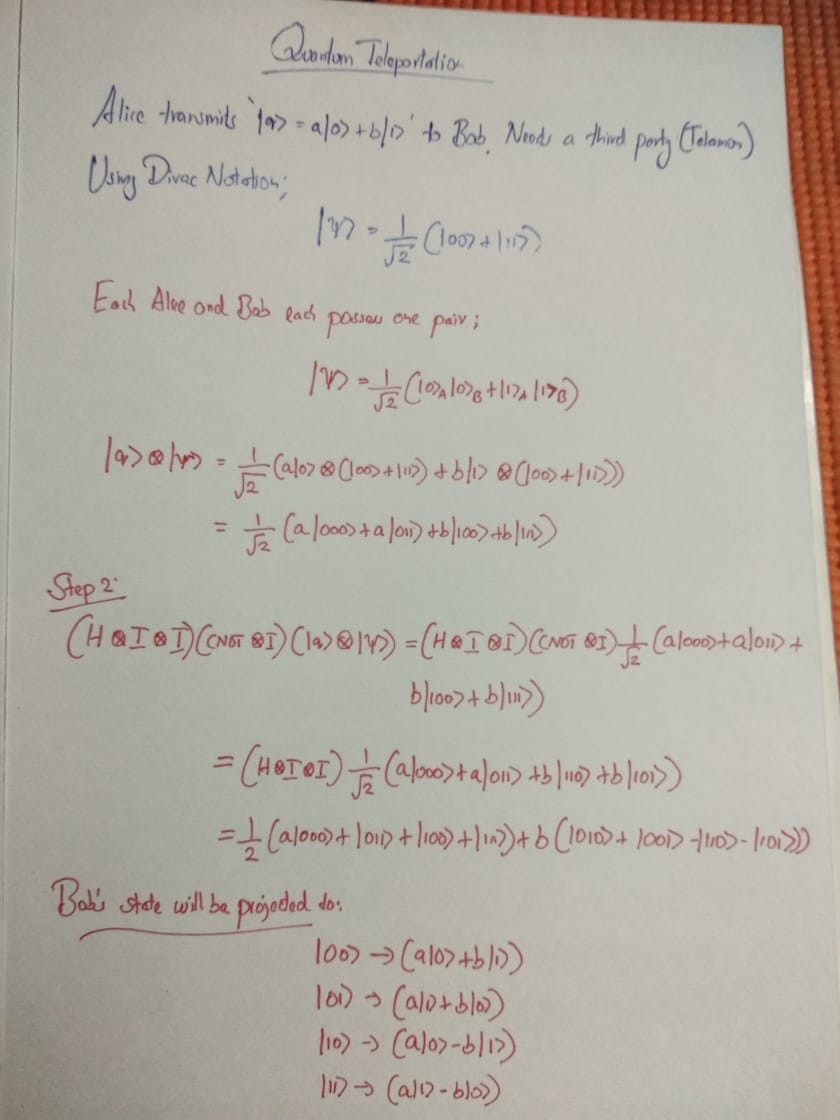 Quantum Teleportation
Alice transmits '|q⟩ = a|0⟩ + b|1⟩' to Bob. Needs a third party (Telamon)
Using Dirac Notation;
|ψ⟩ = 1/√2 (|00⟩ + |11⟩)
Each Alice and Bob each posses one pair;
|ψ⟩ = 1/√2 (|0⟩A |0⟩B + |1⟩A |1⟩B)
|q⟩ ⊗ |ψ⟩ = 1/√2 (a|0⟩ ⊗ (|00⟩ + |11⟩) + b|1⟩ ⊗ (|00⟩ + |11⟩))
= 1/√2 (a|000⟩ + a|011⟩ + b|100⟩ + b|111⟩)
Step 2:
(H ⊗ I ⊗ I)(CNOT ⊗ I)(|q⟩ ⊗ |ψ⟩) = (H ⊗ I ⊗ I)(CNOT ⊗ I) 1/√2 (a|000⟩ + a|011⟩ +
b|100⟩ + b|111⟩)
= (H ⊗ I ⊗ I) 1/√2 (a|000⟩ + a|011⟩ + b|110⟩ + b|101⟩)
= 1/2 (a|000⟩ + |011⟩ + |100⟩ + |111⟩) + b (|010⟩ + |001⟩ - |110⟩ - |101⟩))
Bob's state will be projected to:
|00⟩ → (a|0⟩ + b|1⟩)
|01⟩ → (a|1⟩ + b|0⟩)
|10⟩ → (a|0⟩ - b|1⟩)
|11⟩ → (a|1⟩ - b|0⟩)